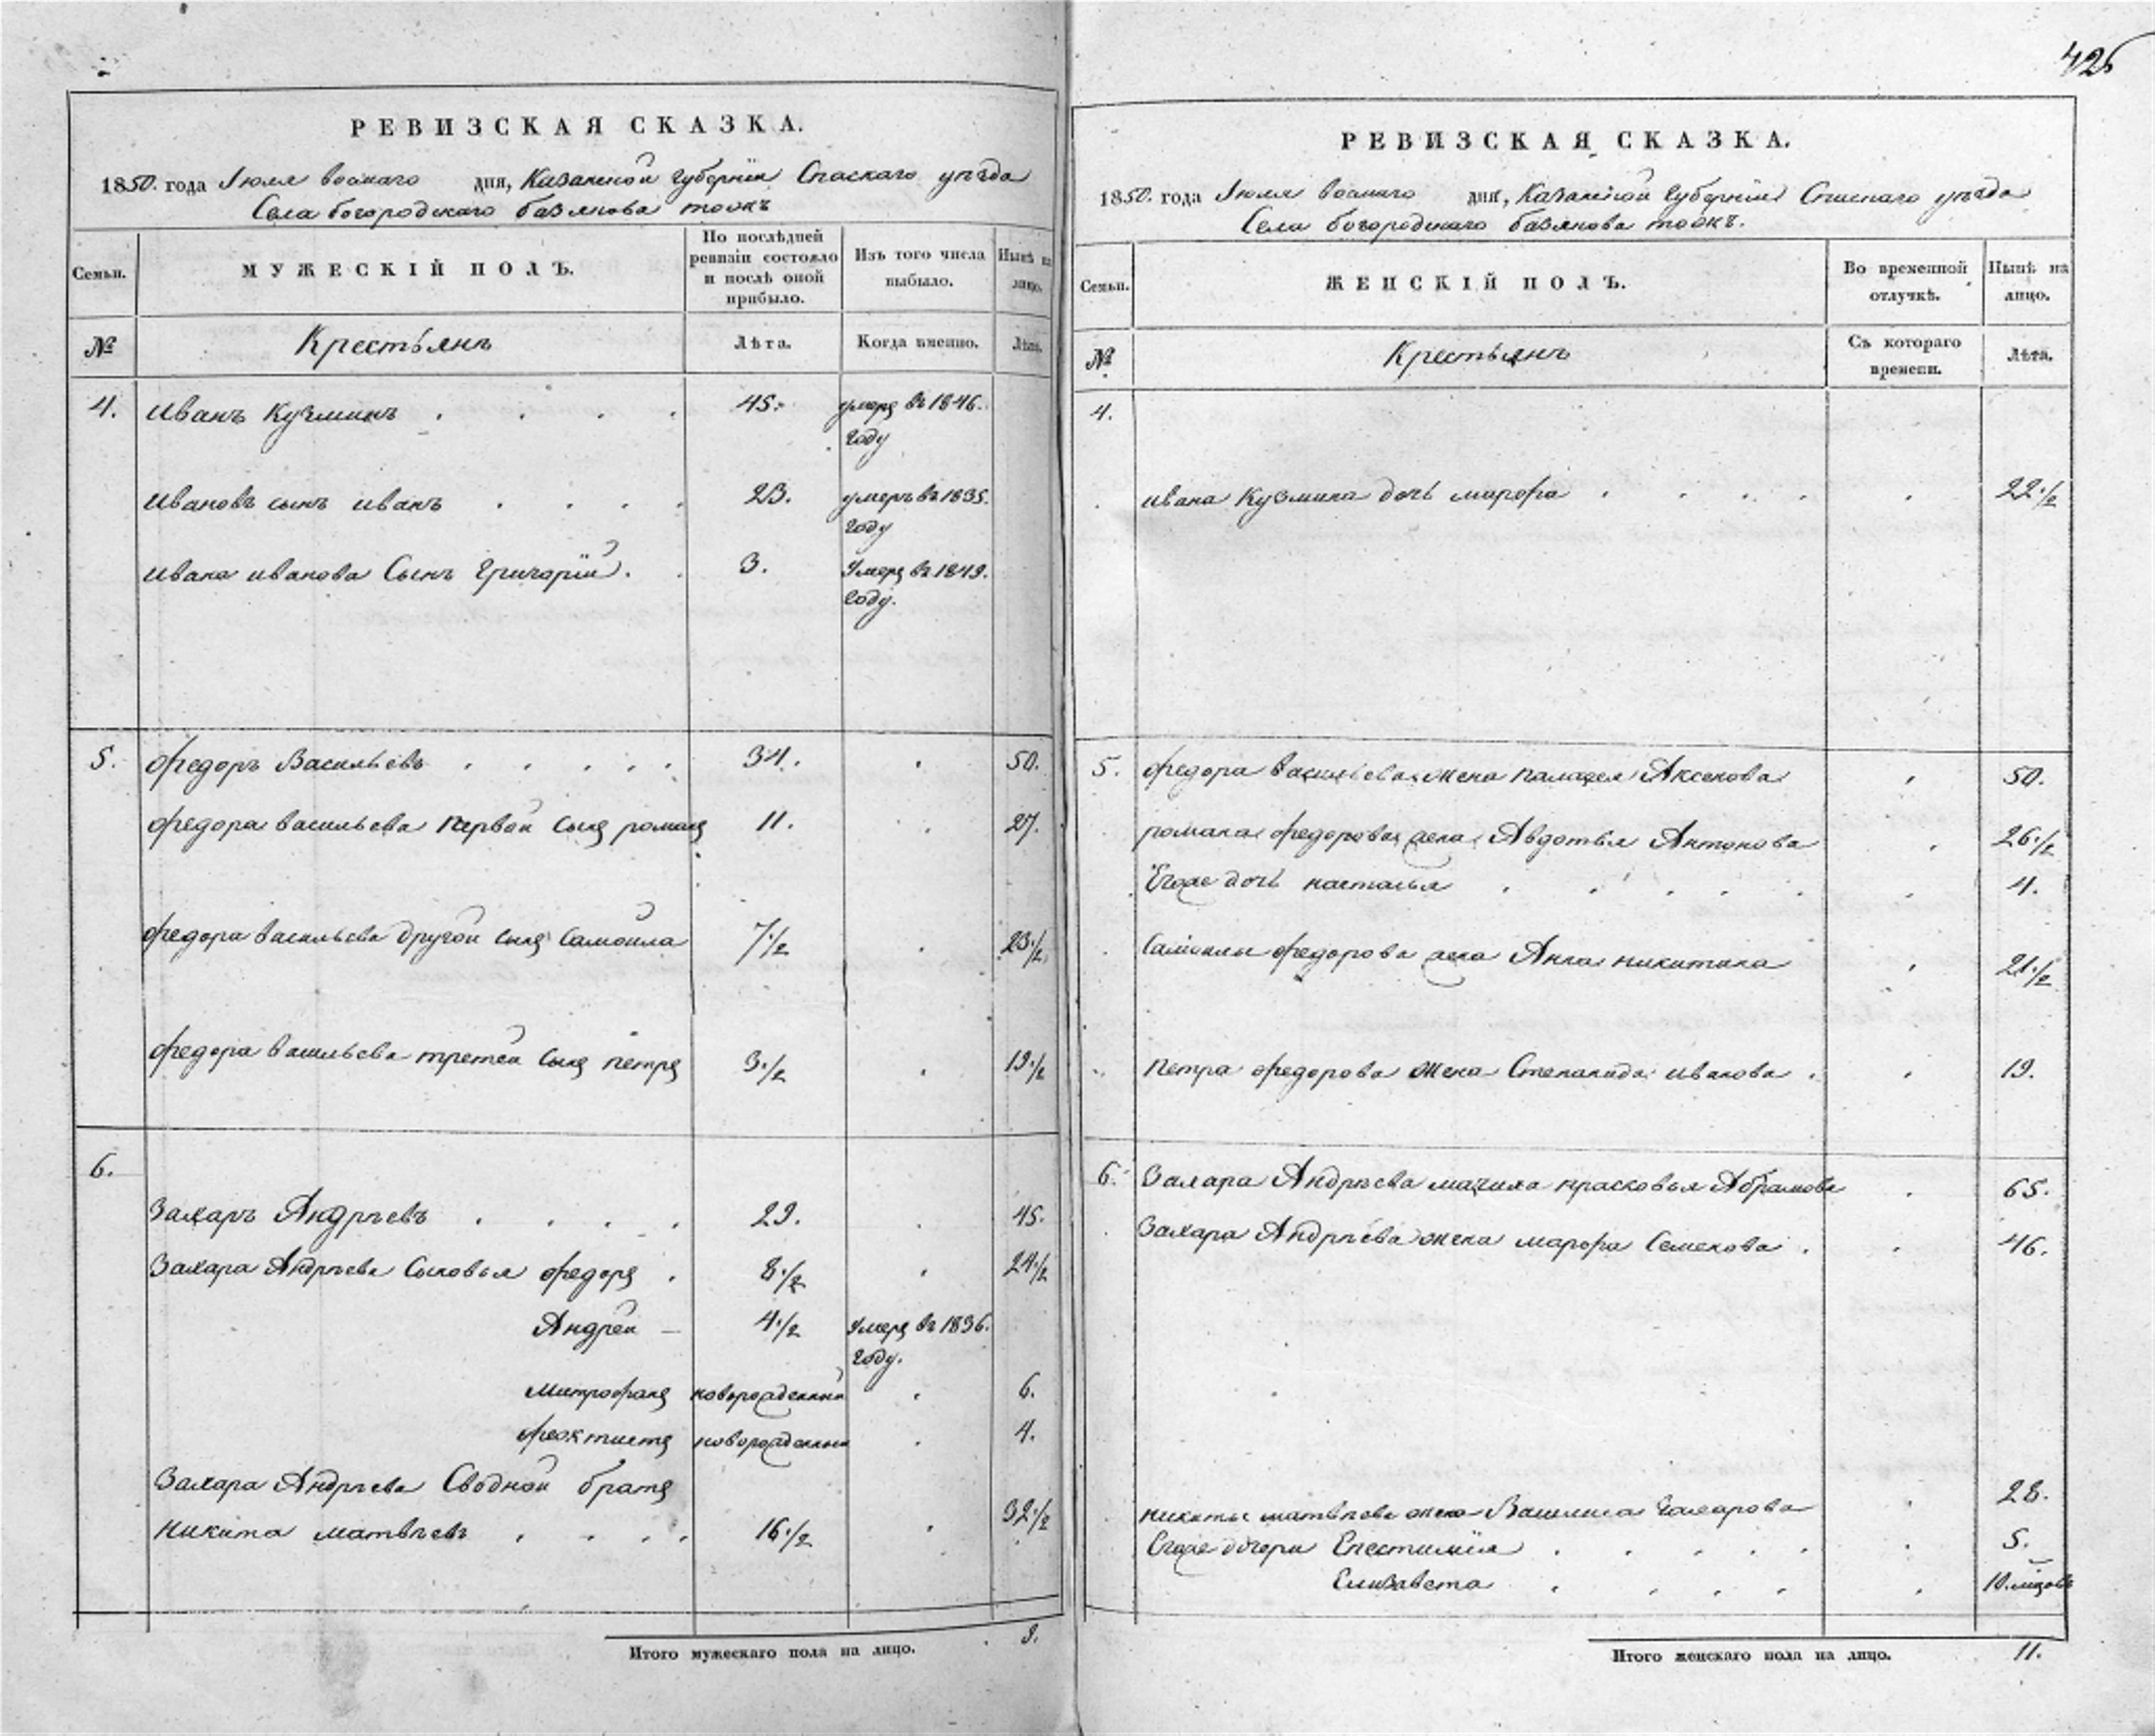 426
РЕВИЗСКАЯ СКАЗКА.
1850. года Іюля восмаго дня, Казанской губерніи Спаскаго уѣзда
Села богородскаго базякова тожъ
Семьи.
МУЖЕСКІЙ ПОЛЪ.
По послѣдней ревизіи состояло и послѣ оной прибыло.
Изъ того числа выбыло.
Нынѣ на лицо.
№
Крестьянъ
Лѣта.
Когда именно.
Лѣта.
4. иванъ Кузминъ . . . . 45. умеръ въ 1846. году
ивановъ сынъ иванъ . . . . 23. умеръ въ 1835. году
ивана иванова Сынъ Григорій . . 3. Умеръ въ 1849. году.
5. федоръ Васильевъ . . . . . 34. . 50.
федора васильева первой сынъ романъ 11. . 27.
федора васильева другой сынъ Самойла 7 1/2 . 23 1/2
федора васильева третей сынъ петръ 3 1/2 . 19 1/2
6.
Захаръ Андрѣевъ . . . . 29. . 45.
Захара Андрѣева Сыновья федоръ . 8 1/2 . 24 1/2
Андрей — 4 1/2 Умеръ въ 1836. году.
Митрофанъ новорожденный . 6.
феоктистъ новорожденный . 4.
Захара Андрѣева Сводной братъ
никита матвѣевъ . . . . 16 1/2 . 32 1/2
Итого мужескаго пола на лицо. 9.
РЕВИЗСКАЯ СКАЗКА.
1850. года Іюля восмаго дня, Казанской губерніи Спаскаго уѣзда
Села богородскаго базякова тожъ.
Семьи.
ЖЕНСКІЙ ПОЛЪ.
Во временной отлучкѣ.
Нынѣ на лицо.
№
Крестьянъ
Съ котораго времени.
Лѣта.
4.
ивана Кузмина дочь марфа . . . . . 22 1/2
5. федора васильева жена палагея Аксенова . 50.
романа федорова жена Авдотья Антонова . 26 1/2
Егоже дочь настасья . . . . . . 4.
Самойлы федорова жена Анна никитина . 21 1/2
петра федорова жена Степанида иванова . . 19.
6. Захара Андрѣева мачиха прасковья Абрамова . 65.
Захара Андрѣева жена марфа Семенова . . 46.
никиты матвѣева жена Василиса Захарова . 28.
Егоже дочери . . . . . . 5.
Елизавета . . . . . 10. мѣсяцовъ
Итого женскаго пола на лицо. 11.